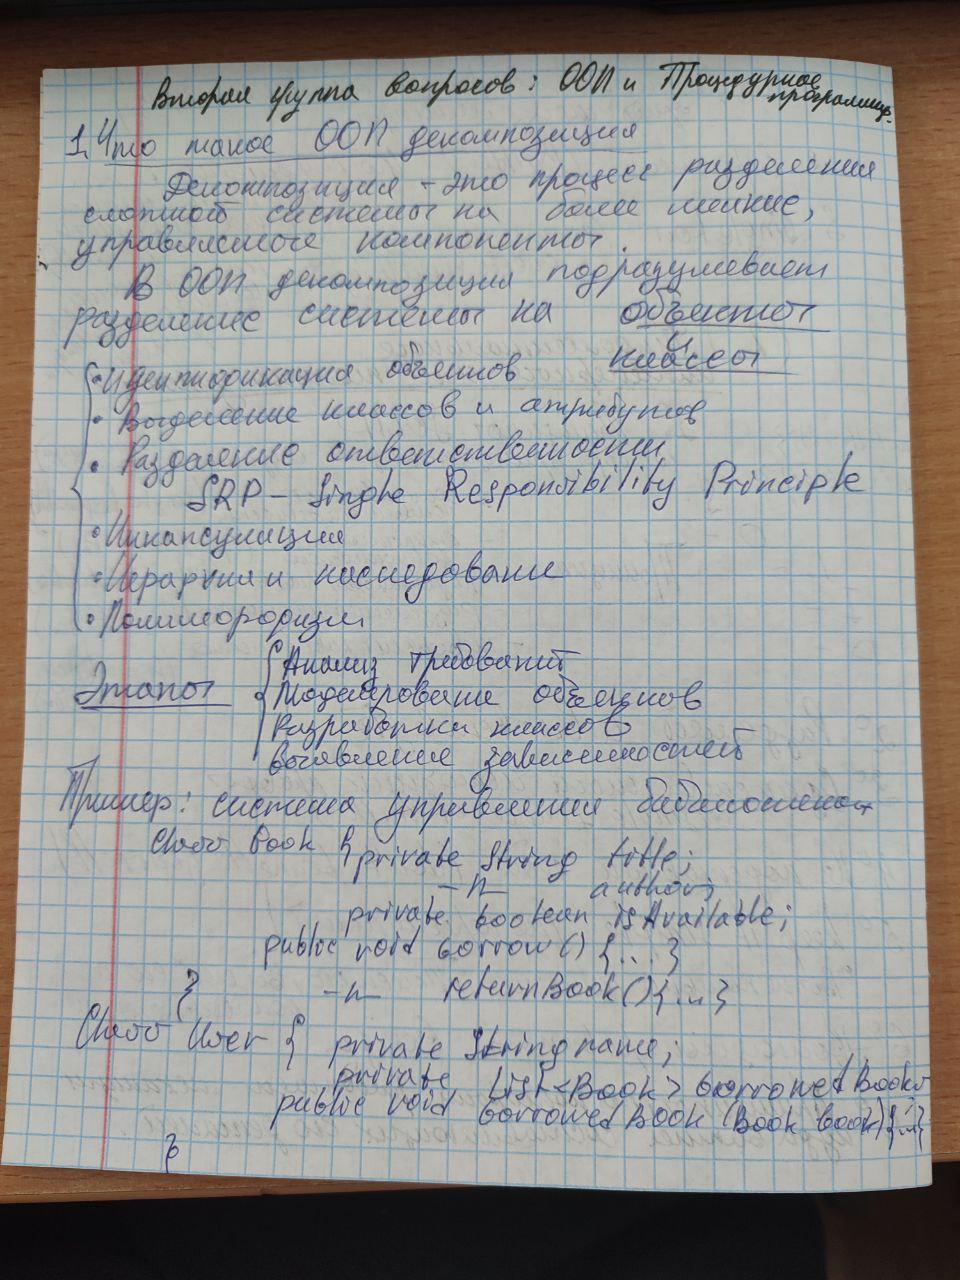 Вторая группа вопросов: ООП и Процедурное
программир.
1. Что такое ООП декомпозиция
Декомпозиция - это процесс разделения
сложной системы на более мелкие,
управляемые компоненты.
В ООП декомпозиция подразумевает
разделение системы на объекты
и
классы
• Идентификация объектов
• Выделение классов и атрибутов
• Разделение ответственности
SRP - Single Responsibility Principle
• Инкапсуляция
• Иерархия и наследование
• Полиморфизм
Этапы { Анализ требований
Моделирование объектов
Разработка классов
выявление зависимостей
Пример: система управления библиотекой
Class Book { private String title;
-"- author;
private boolean isAvailable;
public void borrow() {...}
} -"- returnBook(){...}
Class User { private String name;
private List<Book> borrowedBooks;
public void borrowedBook (Book book){...}
}